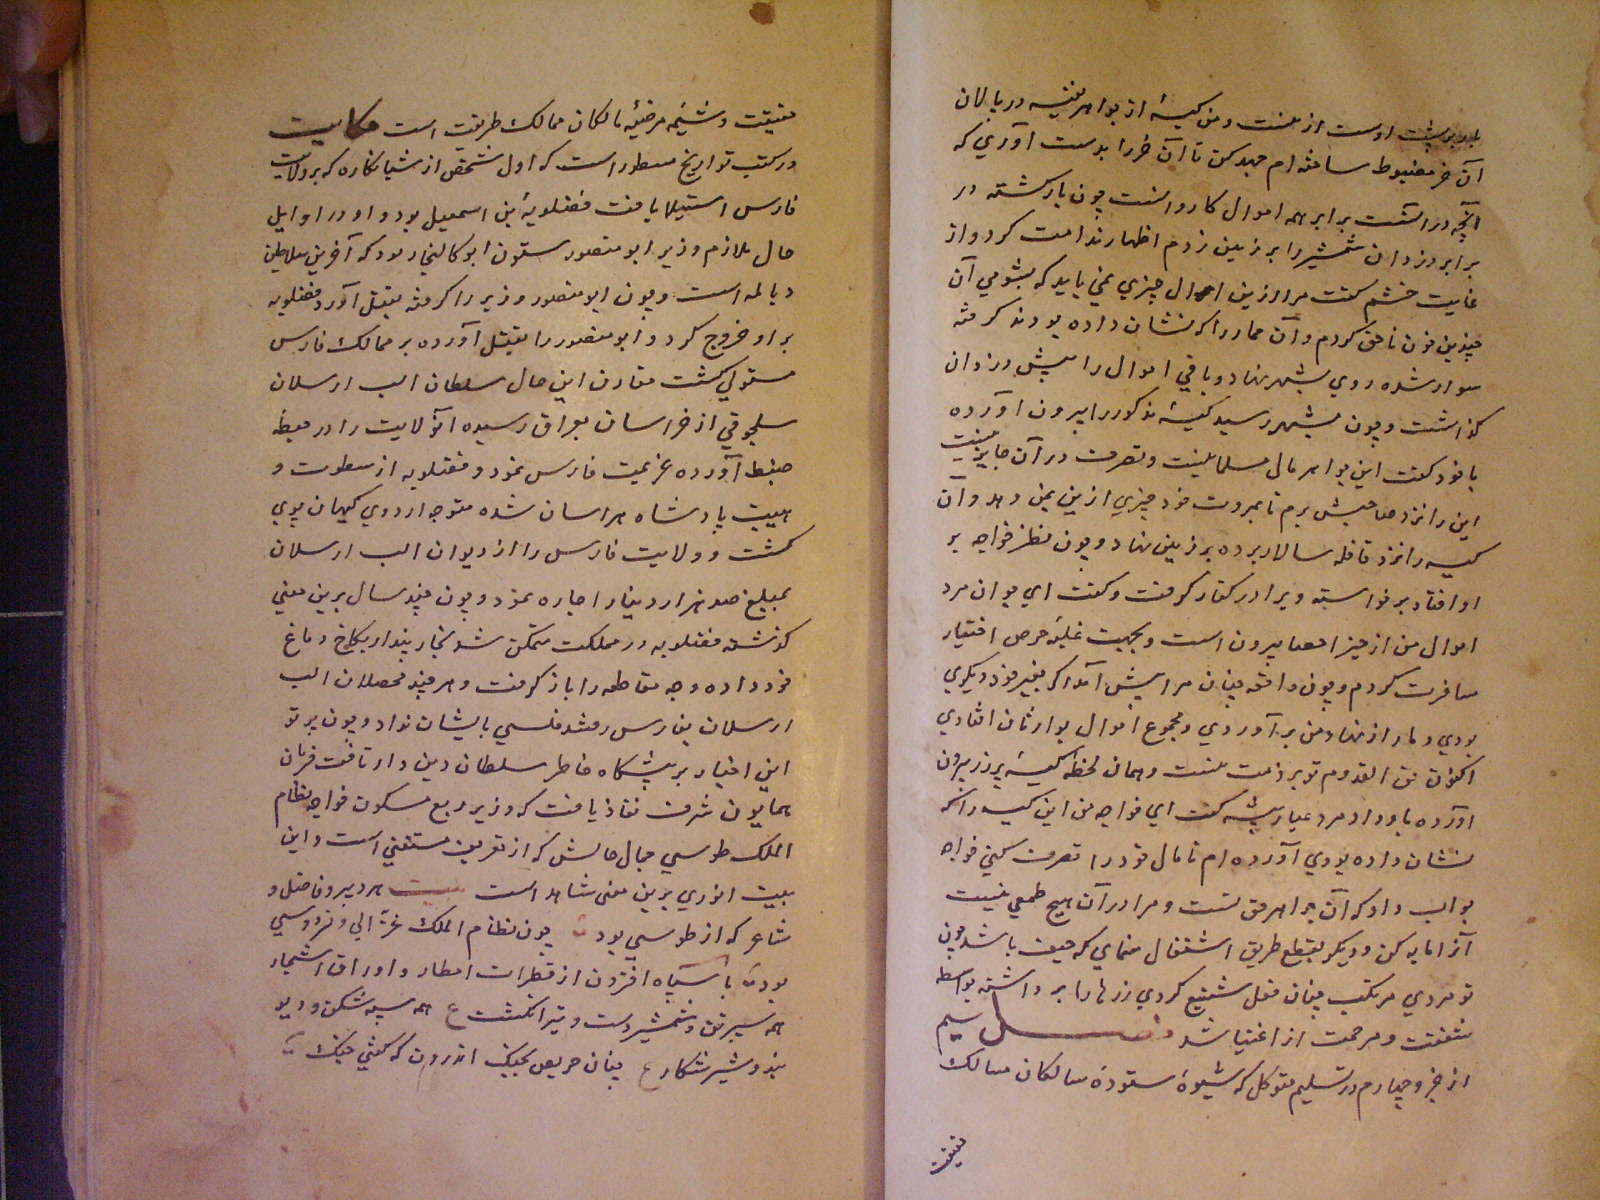 بار بر پشت اوست از منست و من کیسهٔ از جواهر نفیسه در پالان
آن خر مضبوط ساخته‌ام جهد کن تا آن خر را بدست آوری که
آنچه در آنست برابر همه اموال کاروانست چون بازکشته در
برابر دزدان شمشیر را بر زمین زدم اظهار ندامت کرد و از
غایت خشم کفت مرا ازین اموال چیزی نمی‌باید که بشومی آن
چندین خون ناحق کردم و آن حمار را که نشان داده بودند کرفته
سوار شده روی بشهر نهاد و باقی اموال را پیش دزدان
کذاشت و چون بشهر رسید کیسهٔ مذکور را بیرون آورده
با خود کفت این جواهر مال مسلمانیست و تصرف در آن جایز نیست
این را نزد صاحبش برم تا بمروت خود چیزی ازین بمن دهد و آن
کیسه را نزد قافله سالار برده بر زمین نهاد و چون نظر خواجه بر
او افتاد برخواسته ویرا در کنار کرفت و کفت ای جوان مرد
اموال من از حیز احصا بیرون است و بجهت غلبهٔ حرص اختیار
مسافرت کردم و چون واقعه چنان مرا پیش آمد اکر بغیر خود دیکری
بودی دمار از نهاد من برآوردی و مجموع اموال بوارثان افتادی
اکنون حق القدوم تو بر ذمت منست و همان لحظه کیسهٔ پر زر بیرون
آورده باو داد مرد عیار پیشه کفت ای خواجه من این کیسه را که
نشان داده بودی آورده‌ام تا مال خود را تصرف کنی خواجه
جواب داد که آن جواهر حق تست و مرا در آن هیچ طمعی نیست
آنرا مایه کن و دیکر بقطع طریق اشتغال منمای که حیف باشد چون
تو مردی مرتکب چنان فعل شنیع کردی زرها را برداشته بواسطه
شفقت و مرحمت از اغنیا شد فصل سیم
از جزو چهارم در تسلیم متوکل که شیوهٔ ستودهٔ سالکان مسالک
حقیقت
حقیقت و شیمهٔ مرضیهٔ مالکان ممالک طریقت است حکایت
در کتب تواریخ مسطور است که اول شخص از شبانکاره که بر ولایت
فارس استیلا یافت فضلویهٔ بن اسمعیل بود و او در اوایل
حال ملازم وزیر ابو منصور ستون ابو کالنجار بود که آخرین سلاطین
دیالمه است و چون ابو منصور وزیر را کرفته بقتل آورد فضلویه
بر او خروج کرد و ابو منصور را بقتل آورده بر ممالک فارس
مستولی کشت مقارن این حال سلطان الب ارسلان
سلجوقی از خراسان بعراق رسیده آنولایت را در حیطهٔ
ضبط آورده عزیمت فارس نمود و فضلویه از سطوت و
هیبت پادشاه هراسان شده متوجه اردوی کیهان پوی
کشت و ولایت فارس را از دیوان الب ارسلان
بمبلغ صد هزار دینار اجاره نمود و چون چند سال برین معنی
کذشته فضلویه در مملکت متمکن شد بخار پندار بکاخ دماغ
خود داده وجه مقاطعه را باز کرفت و هر چند محصلان الب
ارسلان بفارس رفتند فلسی بایشان نداد و چون پرتو
این اخبار بر پیشکاه خاطر سلطان دین دار تافت فرمان
همایون شرف نفاذ یافت که وزیر ربع مسکون خواجه نظام
الملک طوسی جمال حالش که از تعریف مستغنی است و این
بیت انوری برین معنی شاهد است بیت هر دبیر و فاضل و
شاعر که از طوسی بود چون نظام الملک غزالی و فردوسی
بود با سپاه افزون از قطرات امطار و اوراق اشجار
همه سیر تن و شمشیر دست و تیر انکشت ع همه سپه شکن و دیو
بند و شیر شکار ع چنان حریص بجنک اندرون که کفتی جنک